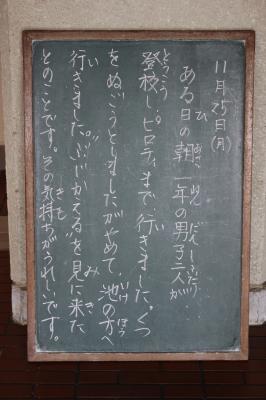 11月25日(月)
ある日の朝、一年の男子二人が…
登校し、ピロティまで行きました。くつ
をぬごうとしましたがやめて、池の方へ
行きました。“ぶじかえる”を見に来た
とのことです。その気持ちがうれしいです。